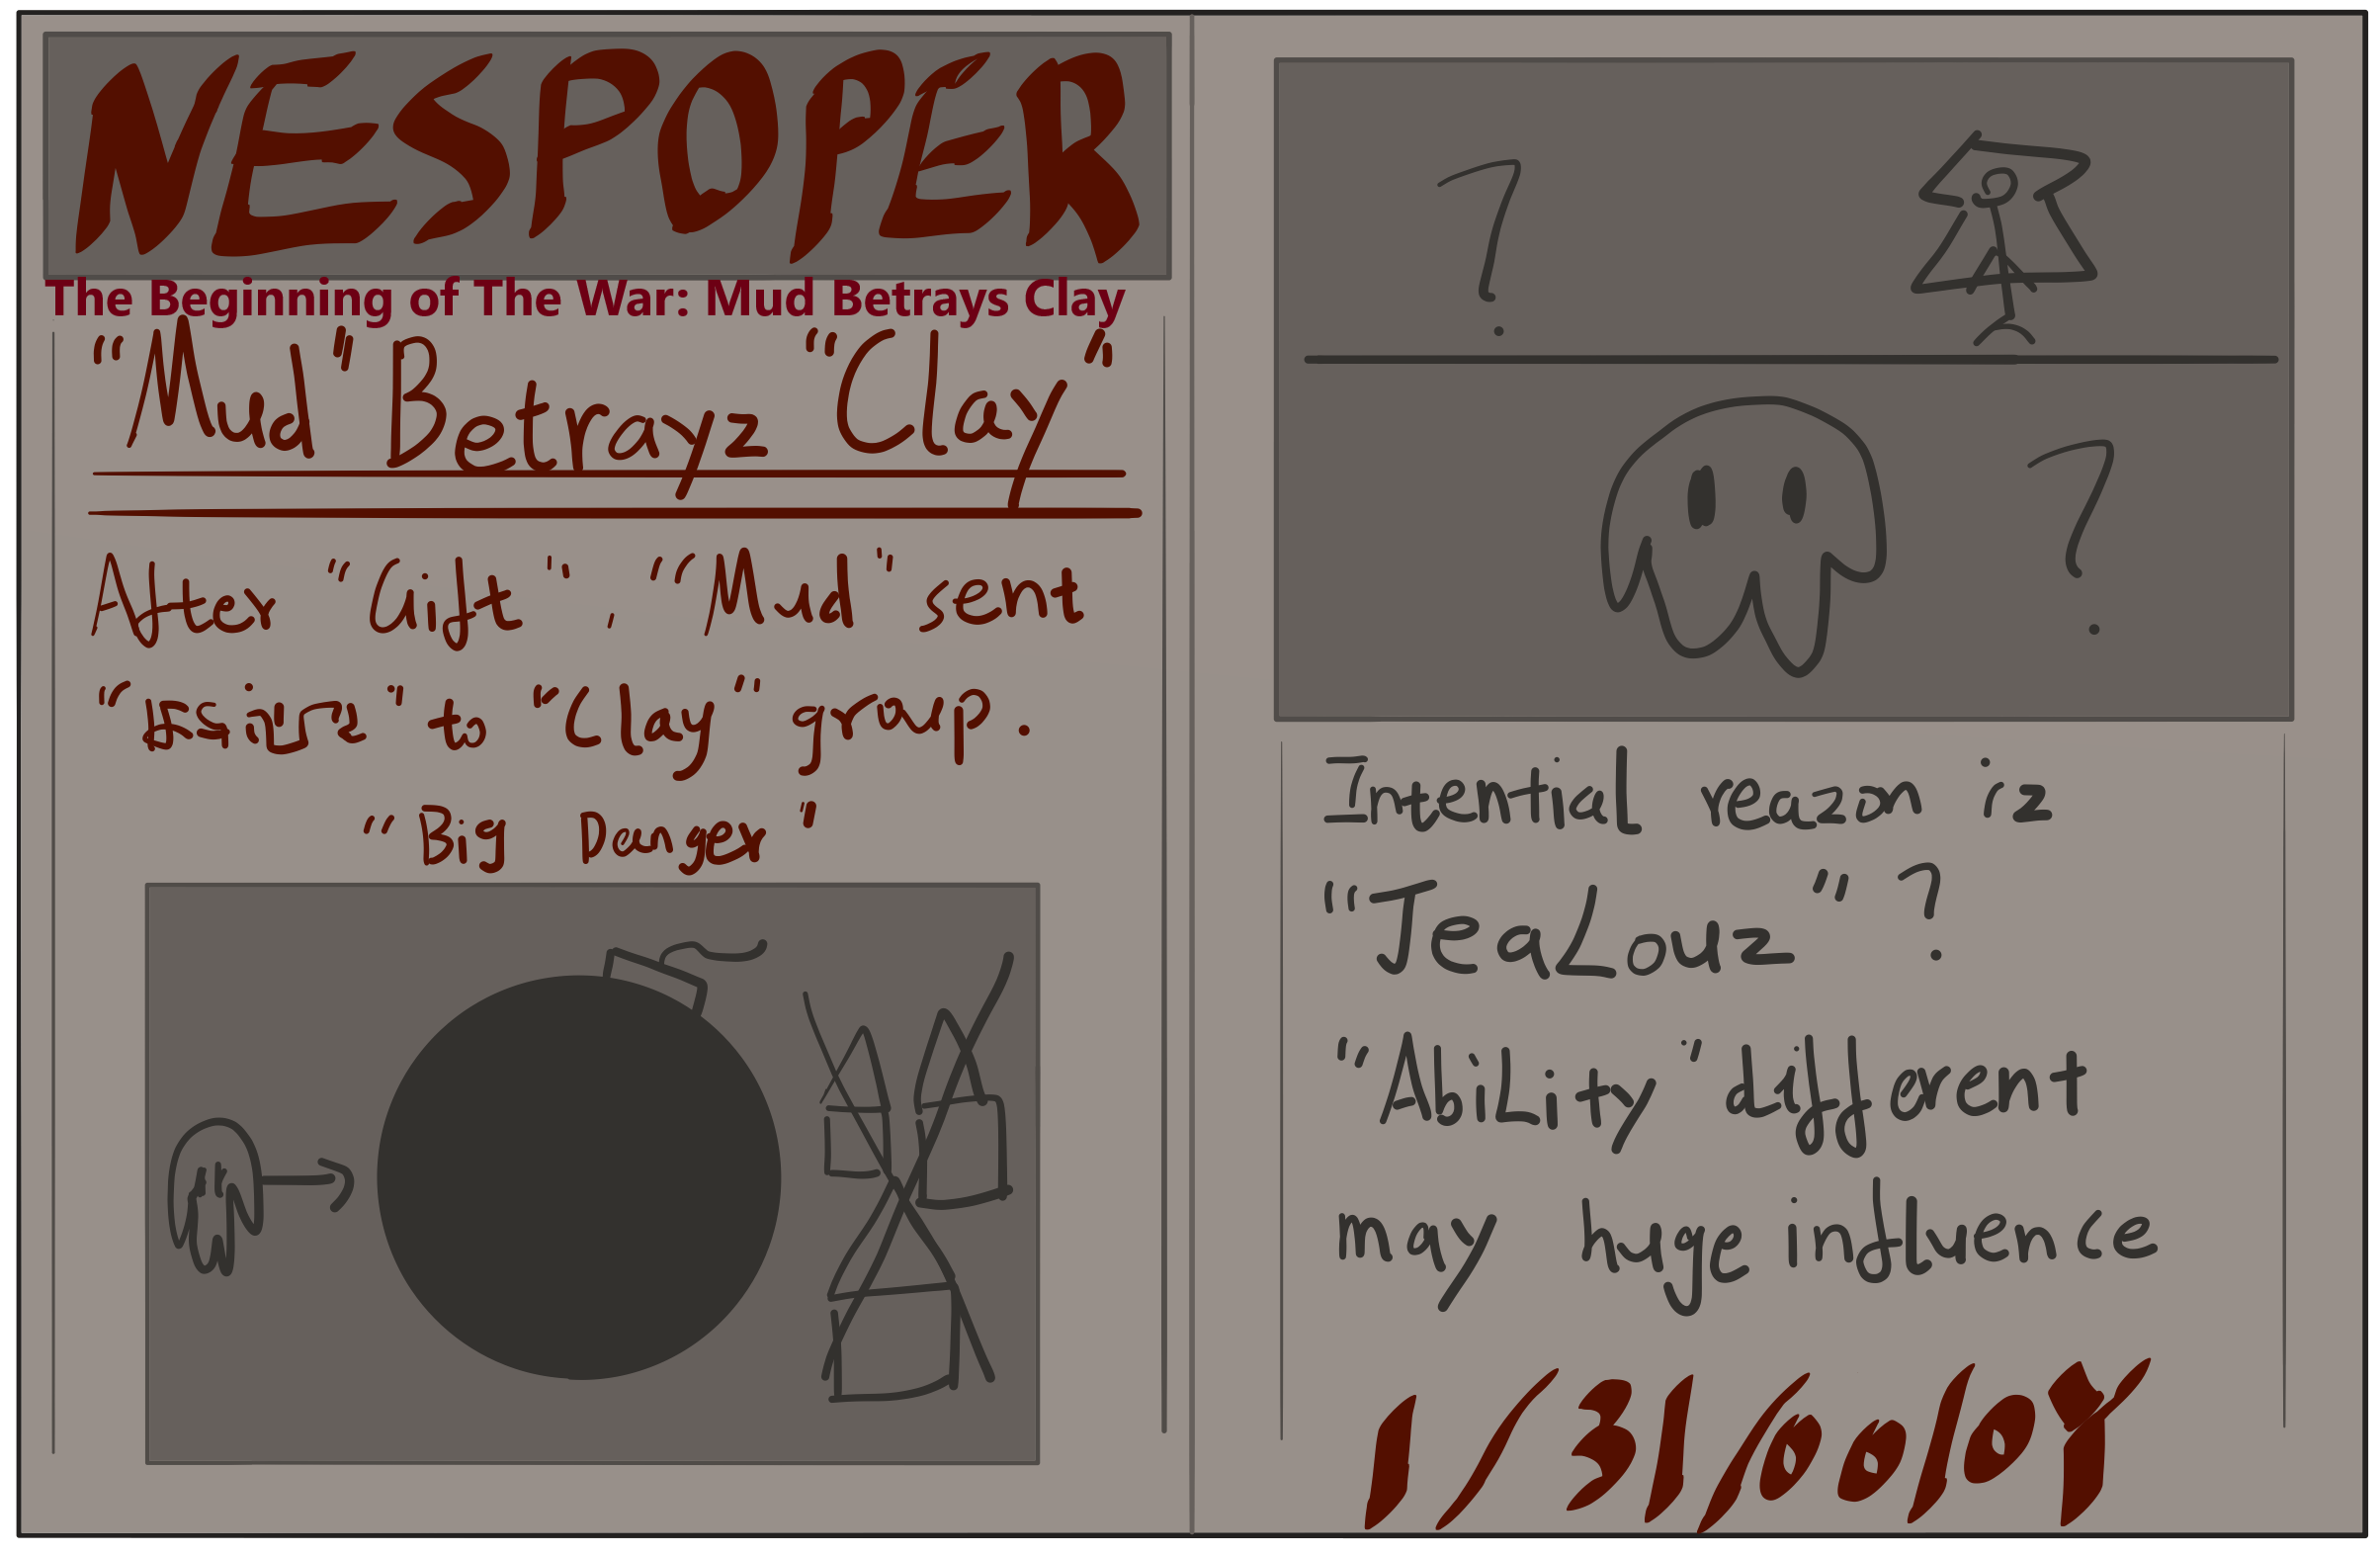 NESPOPER
The Beginning of The War: Mud Betrays Clay
"Mud" Betrayz "Clay"
After "Gift", "Mud" sent
to "Clay" group.
"Big Danger"
?
?
Intentional reazon iz
"JeaLouz"?
"AbiLity" different
may huge influence
1/31/00/0Y